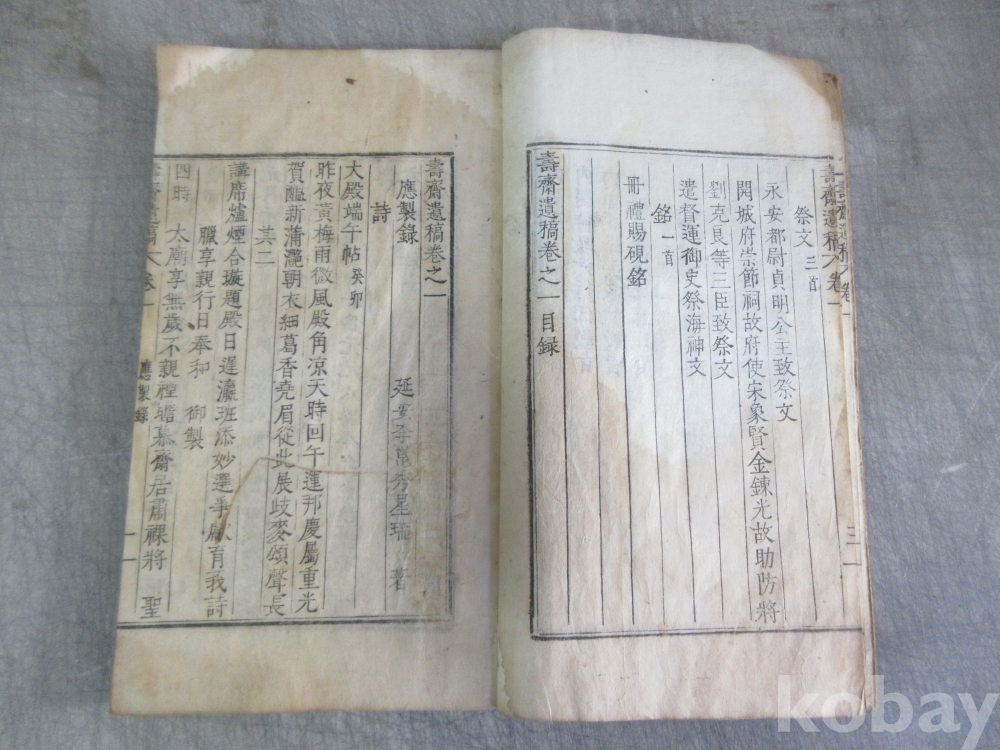 壽齋遺稿 卷一
三
祭文 三首
永安都尉貞明公主致祭文
開城府崇節祠故府使宋象賢金鍊光故助防將
劉克良等三臣致祭文
遣督運御史祭海神文
銘 一首
冊禮賜硯銘
壽齋遺稿卷之一目録
壽齋遺稿卷之一
延安李崑秀星瑞 著
應製錄
詩
大殿端午帖 癸卯
昨夜黃梅雨微風殿角凉天時回午運邦慶屬重光
賀醞新蒲灩朝衣細葛香堯眉從此展歧麥頌聲長
其二
講席爐煙合璇題殿日遲瀛班添妙選爭獻育莪詩
臘享親行日奉和 御製
四時 太廟享無歲不親禋瞻慕齋居肅祼將 聖
卷一
應製錄
一
kobay